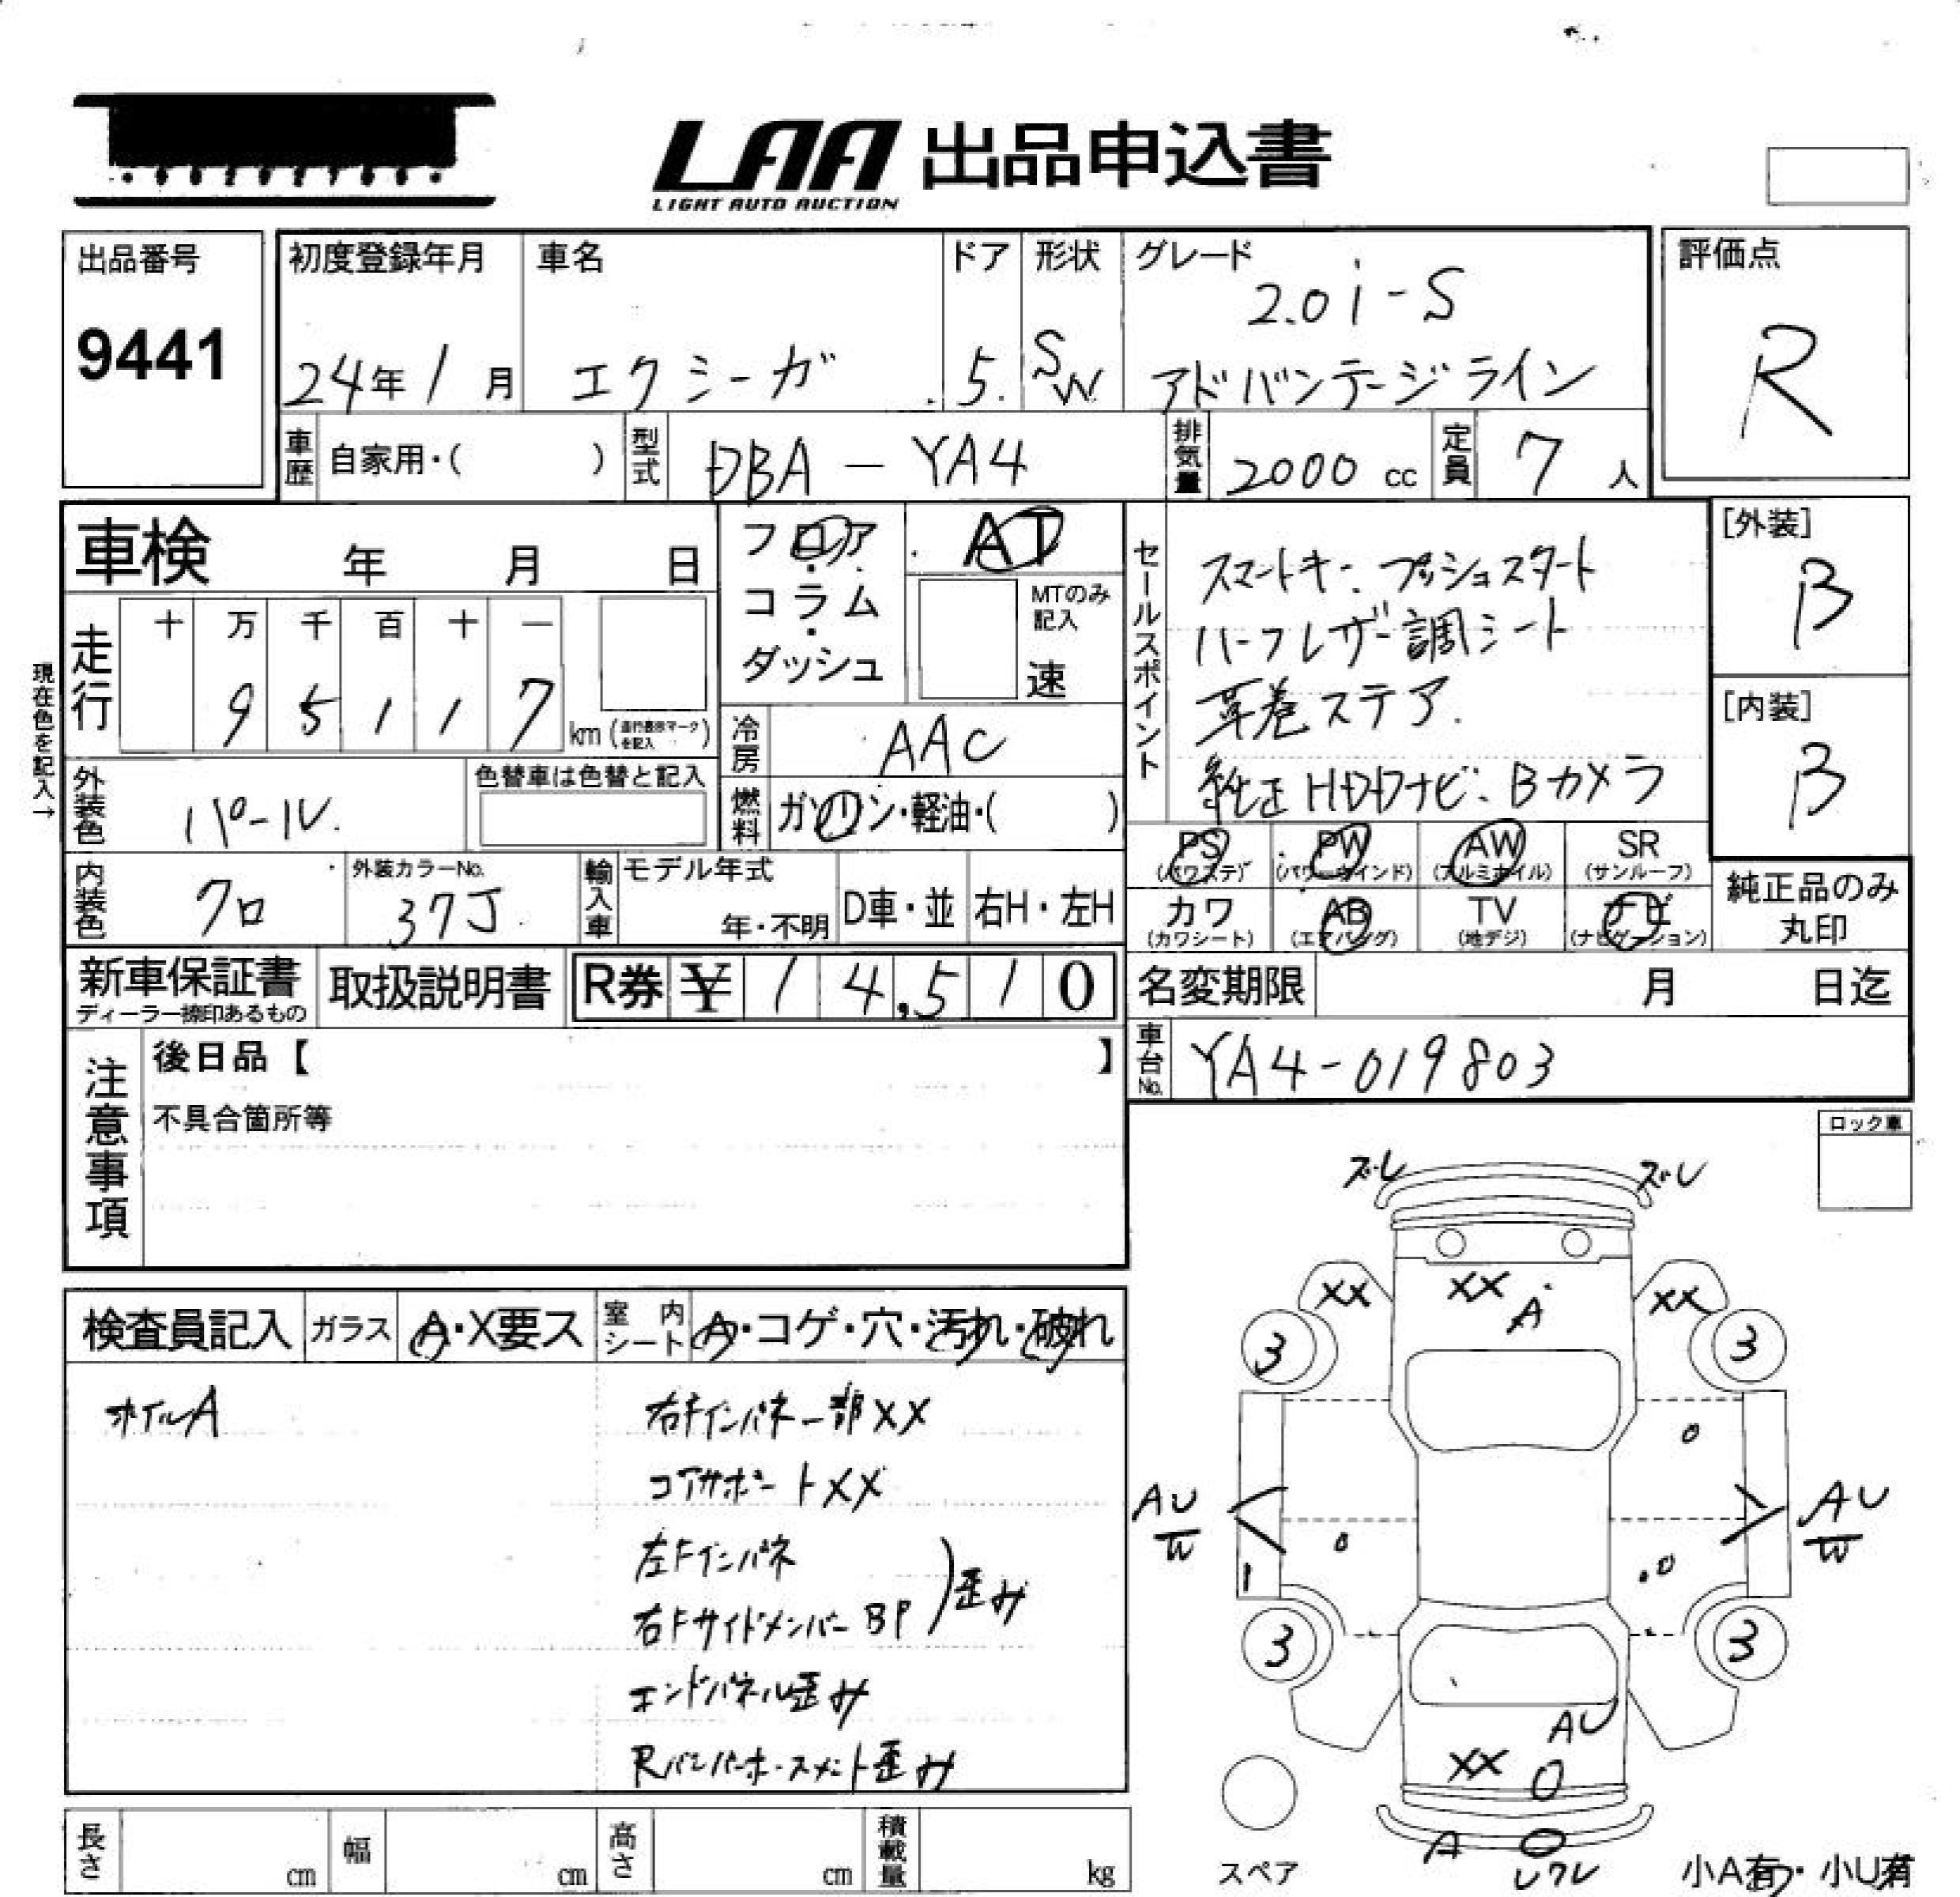 LAA 出品申込書
LIGHT AUTO AUCTION
出品番号
9441
初度登録年月
24年1月
車名
エクシーガ
ドア
5.
形状
SW
グレード
2.0i-S
アドバンテージライン
評価点
R
車歴
自家用・( )
型式
DBA-YA4
排気量
2000 cc
定員
7 人
車検 年 月 日
フロア
・
コラム
・
ダッシュ
AT
MTのみ
記入
速
セールスポイント
スマートキー・プッシュスタート
ハーフレザー調シート
革巻ステア.
純正HDDナビ・Bカメラ
[外装]
B
[内装]
B
現在色を記入→
走行
十 万 千 百 十 一
9 5 1 1 7 km (走行表示マークを記入)
冷房
AAC
外装色
パール
色替車は色替と記入
燃料
ガソリン・軽油・( )
PS
(パワステ)
PW
(パワーウインド)
AW
(アルミホイル)
SR
(サンルーフ)
内装色
クロ
外装カラーNo.
37J
輸入車
モデル年式
年・不明
D車・並
右H・左H
カワ
(カワシート)
AB
(エアバッグ)
TV
(地デジ)
ナビ
(ナビゲーション)
純正品のみ
丸印
新車保証書
ディーラー捺印あるもの
取扱説明書
R券 ¥ 1 4,5 1 0
名変期限 月 日迄
車台No.
YA4-019803
注意事項
後日品【 】
不具合箇所等
ロック車
検査員記入
ガラス
A・X要ス
室内シート
A・コゲ・穴・汚れ・破れ
ホイルA
右Fインパネ一部XX
コアサポートXX
左Fインパネ
右FサイドメンバーBP
)歪み
エンドパネル歪み
Rバンパーホースメント歪み
ズレ
ズレ
XX
XX
A
XX
3
3
AU
W
AU
W
3
3
AU
XX
A
レクレ
スペア
小A有・小U有
長さ cm
幅 cm
高さ cm
積載量 kg